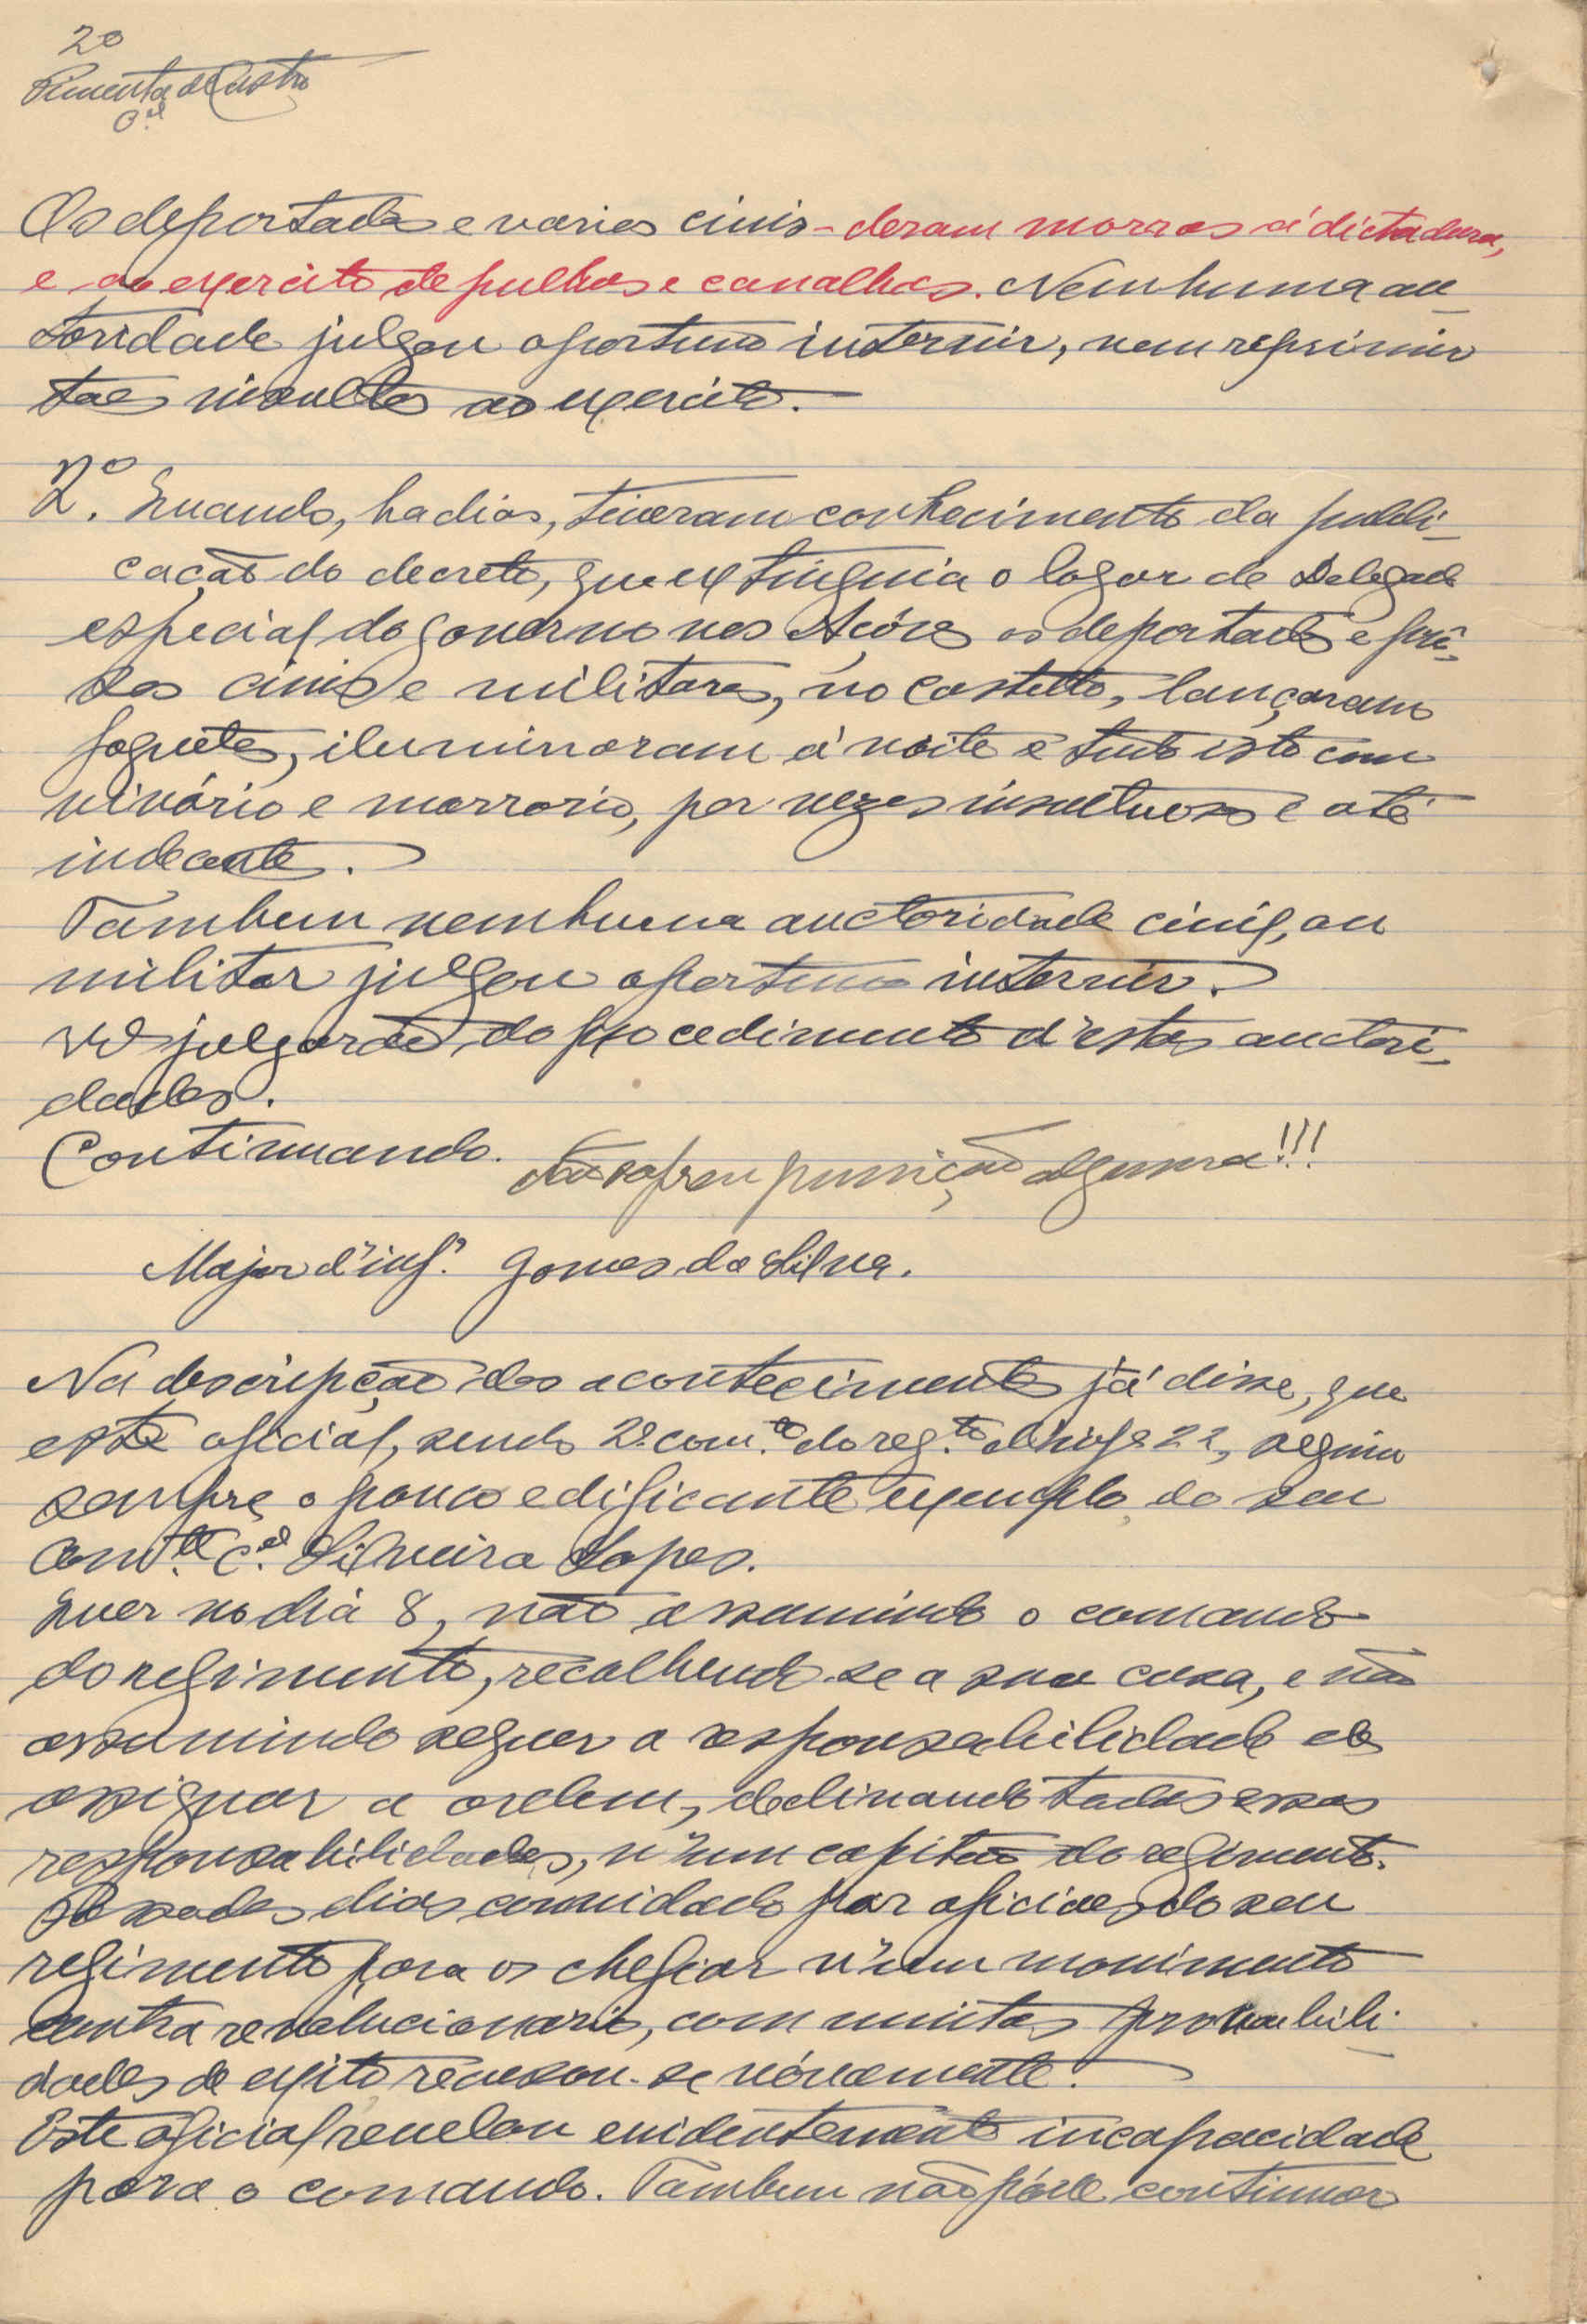 20
Pimenta de Castro
C.el
Os deportados e varios civis - deram morras á dictadura,
e ao exercito de pulhas e canalhas. Nenhuma au-
toridade julgou oportuno intervir, nem reprimir
taes insultos ao exercito.
2º. Quando, ha dias, tiveram conhecimento da publi-
cação do decreto, que extinguia o logar de Delegado
especial do governo nos Açores os deportados e prê-
sos civis e militares, no castello, lançaram
foguetes, iluminaram á noite e tudo isto com
vivório e morrorio, por vezes insultuoso e até
indecente.
Tambem nenhuma auctoridade civil, ou
militar julgou oportuno intervir.
V. Ex. julgarão do procedimento d'estas auctori-
dades.
Continuando. Não sofreu punição alguma!!!
Major d'inf.ª Gomes da Silva.
Na descripção dos acontecimentos já disse, que
este oficial, sendo 2º com.te do reg.to d'inf.ª 22, seguiu
sempre o pouco edificante exemplo do seu
Com.te C.el Silveira Lopes.
Quer no dia 8, não assumindo o comando
do regimento, recolhendo-se a sua casa, e não
assumindo sequer a responsabilidade de
assignar a ordem, declinando todas essas
responsabilidades, n'um capitão do regimento.
Passados dias convidado por oficiaes do seu
regimento para os chefiar n'um movimento
contra revolucionario, com muitas probabili-
dades de exito recusou-se novamente.
Este oficial revelou evidentemente incapacidade
para o comando. Tambem não póde continuar